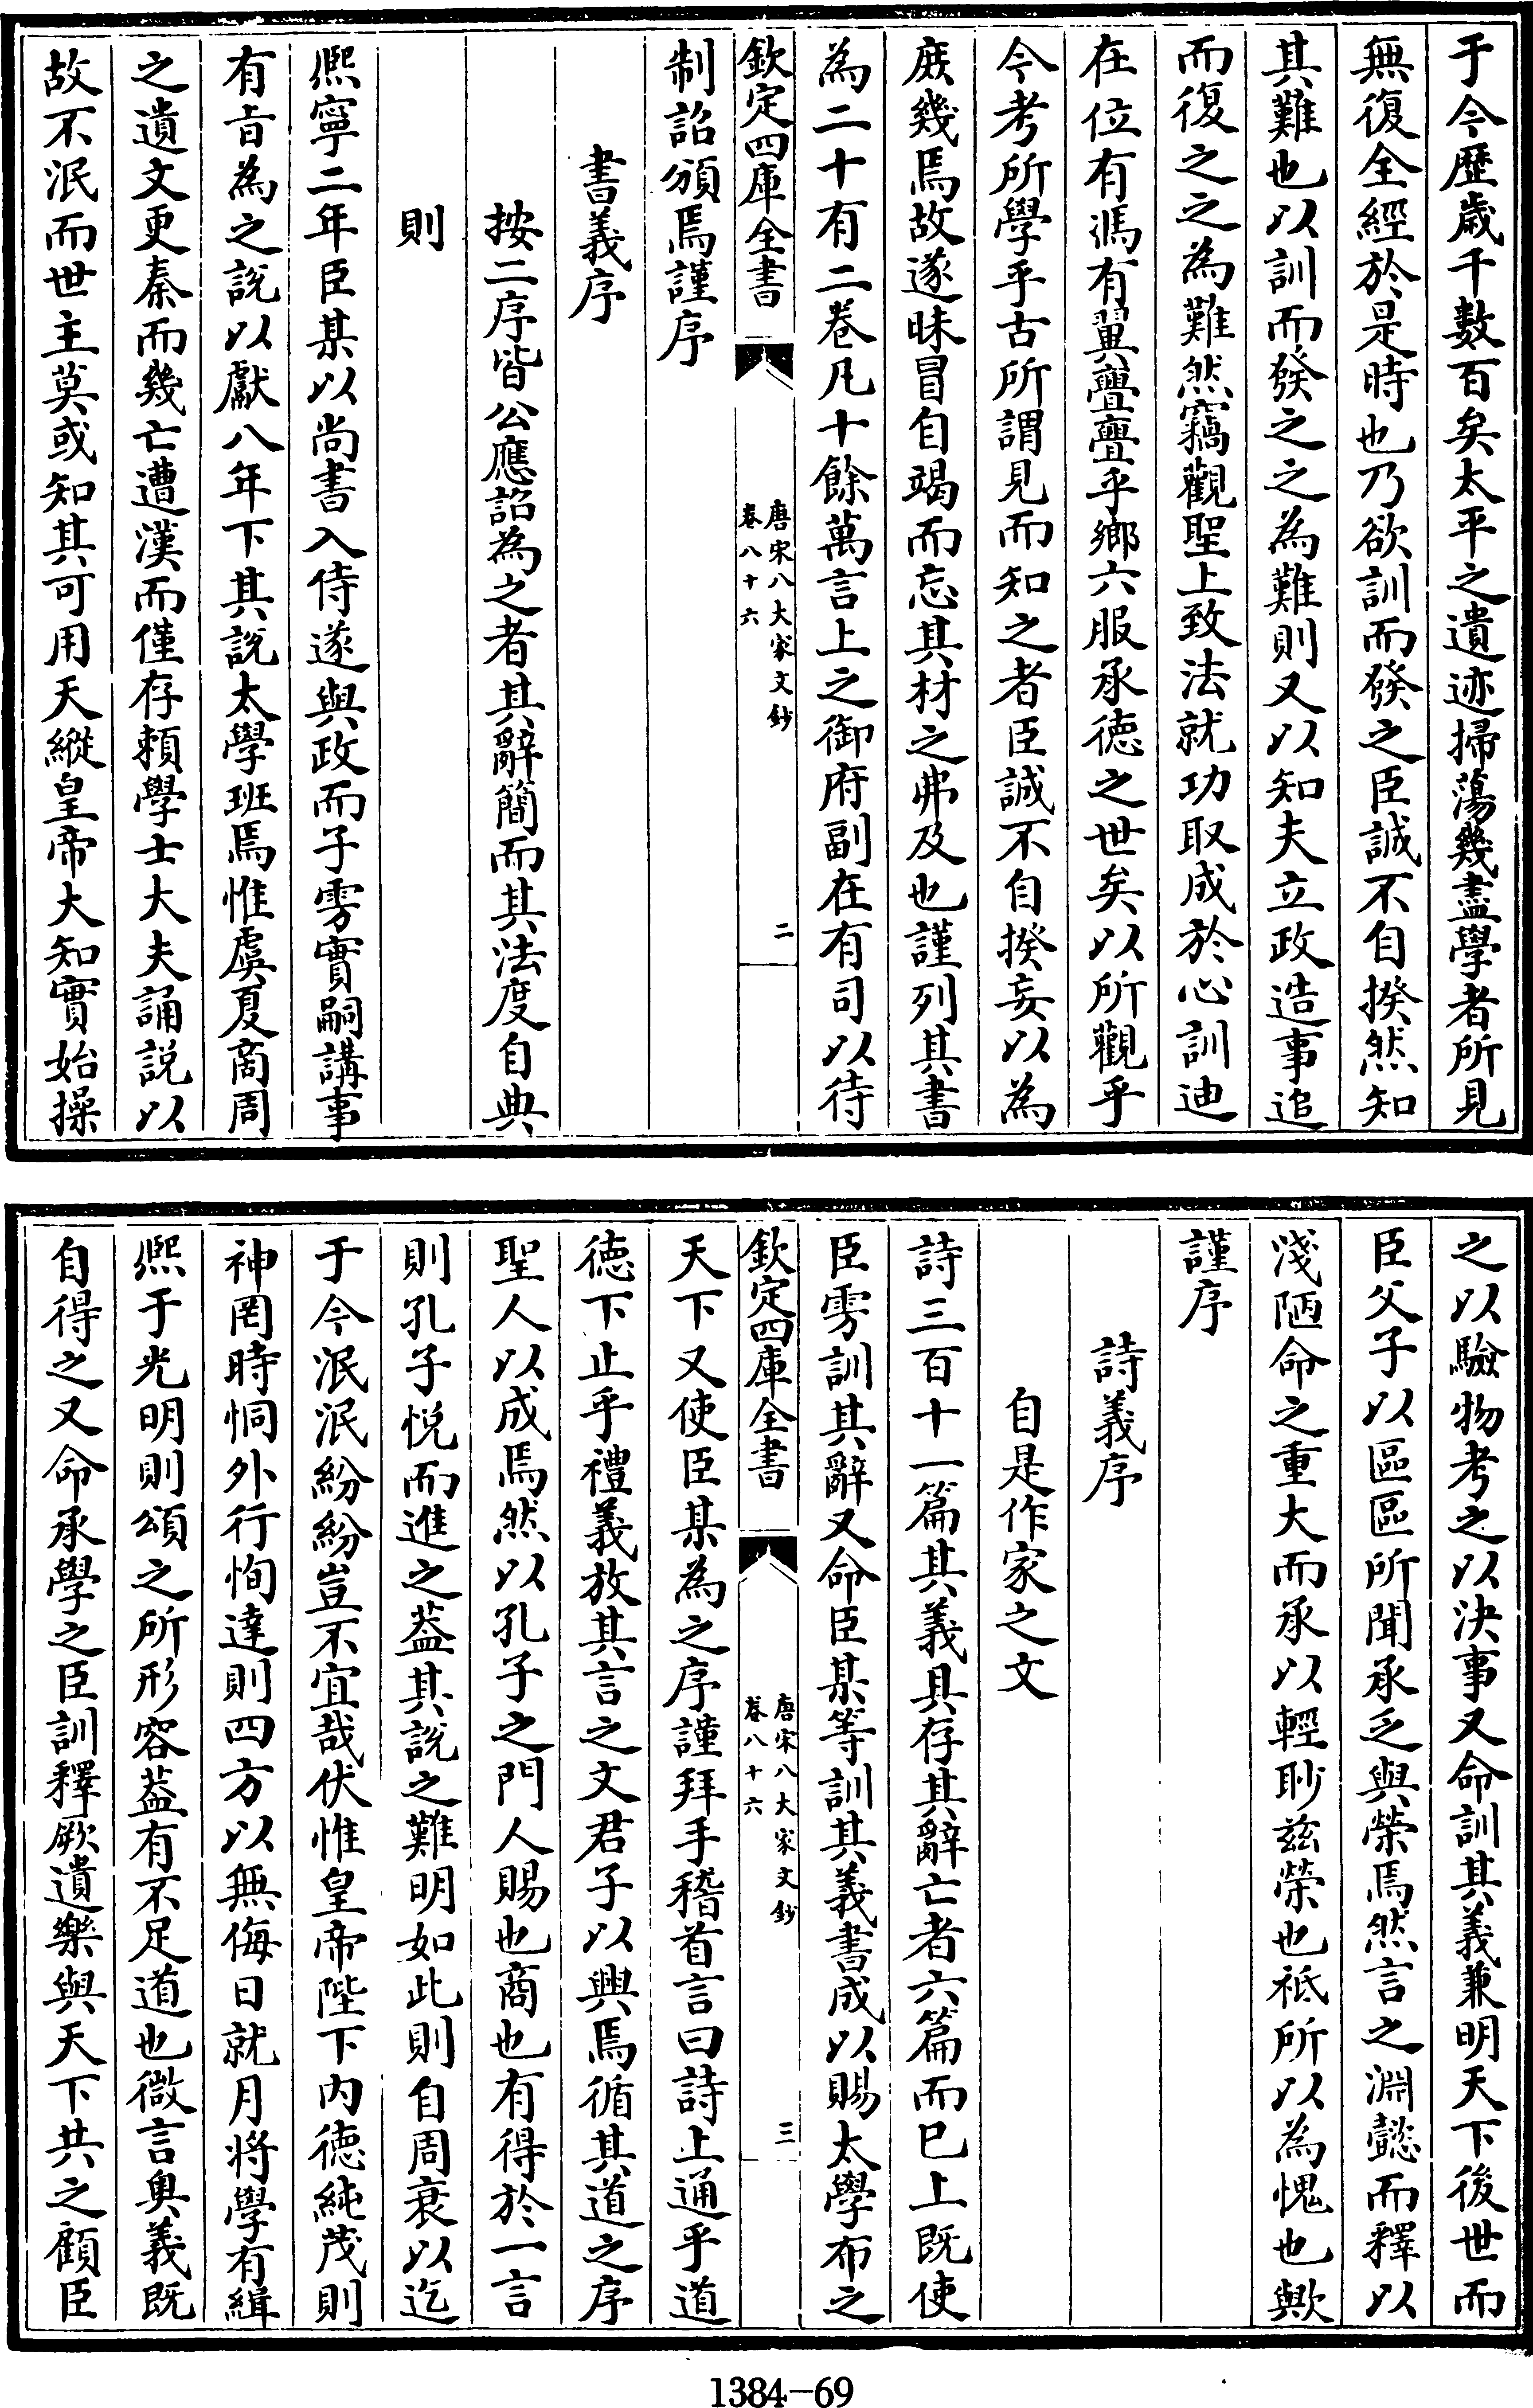 于今歴歳千數百矣太平之遺迹掃蕩幾盡學者所見
無復全經於是時也乃欲訓而發之臣誠不自揆然知
其難也以訓而發之之為難則又以知夫立政造事追
而復之之為難然竊觀聖上致法就功取成於心訓迪
在位有馮有翼亹亹乎鄉六服承德之世矣以所觀乎
今考所學乎古所謂見而知之者臣誠不自揆妄以為
庶幾焉故遂昧冒自竭而忘其材之弗及也謹列其書
為二十有二卷凡十餘萬言上之御府副在有司以待
欽定四庫全書
唐宋八大家文鈔
卷八十六
二
制詔頒焉謹序
書義序
按二序皆公應詔為之者其辭簡而其法度自典
則
熈寧二年臣某以尚書入侍遂與政而子雱實嗣講事
有㫖為之說以獻八年下其說太學班焉惟虞夏商周
之遺文更秦而幾亡遭漢而僅存頼學士大夫誦說以
故不泯而世主莫或知其可用天縱皇帝大知實始操
之以驗物考之以決事又命訓其義兼明天下後世而
臣父子以區區所聞承乏與榮焉然言之淵懿而釋以
淺陋命之重大而承以輕眇兹榮也祗所以為愧也歟
謹序
詩義序
自是作家之文
詩三百十一篇其義具存其辭亡者六篇而已上既使
臣雱訓其辭又命臣某等訓其義書成以賜太學布之
欽定四庫全書
唐宋八大家文鈔
卷八十六
三
天下又使臣某為之序謹拜手稽首言曰詩上通乎道
徳下止乎禮義放其言之文君子以興焉循其道之序
聖人以成焉然以孔子之門人賜也商也有得於一言
則孔子悅而進之葢其說之難明如此則自周衰以迄
于今泯泯紛紛豈不宜哉伏惟皇帝陛下内徳純茂則
神罔時恫外行恂達則四方以無侮日就月將學有緝
熈于光明則頌之所形容葢有不足道也微言奥義既
自得之又命承學之臣訓釋厥遺樂與天下共之顧臣
1384-69